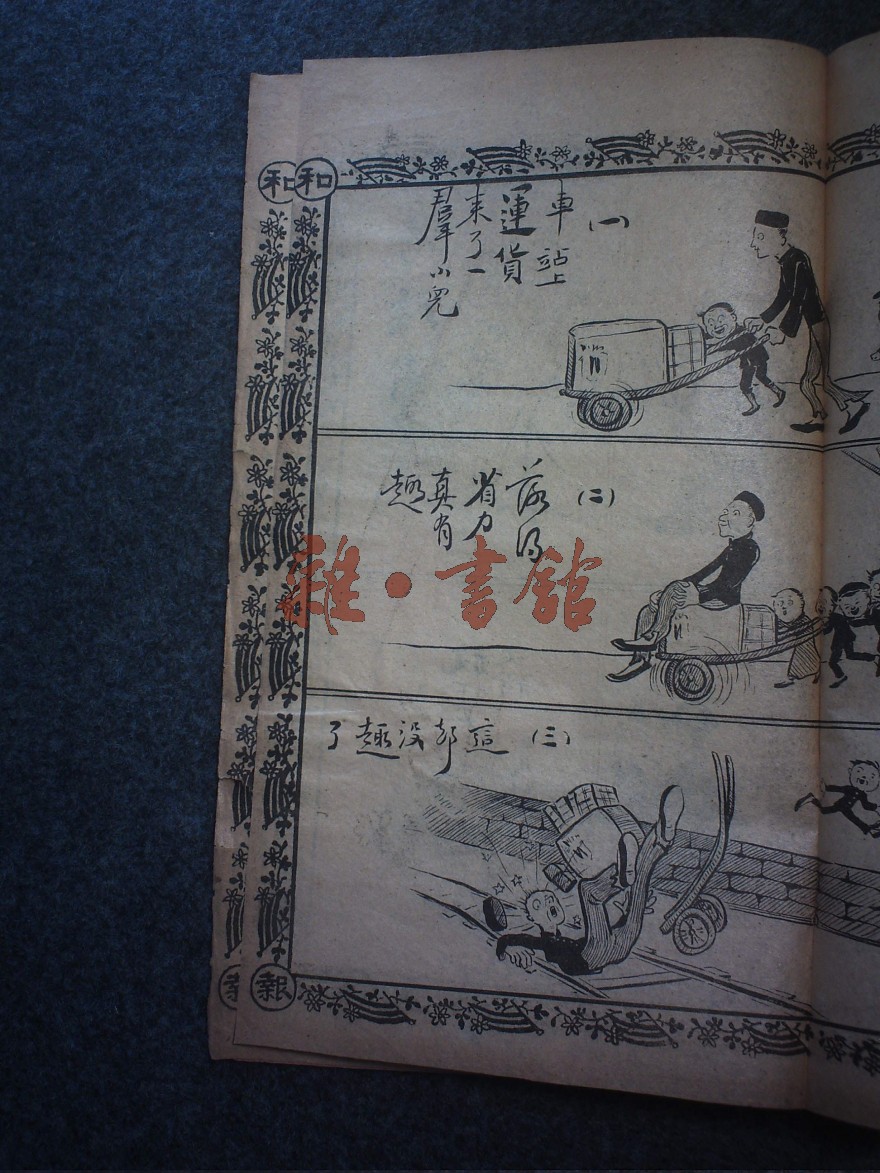 (一)
車站上
運貨
來了一
羣小兒
(二)
落得
省力
真有
趣
(三) 這部没趣了
和
和
報
雜·書館